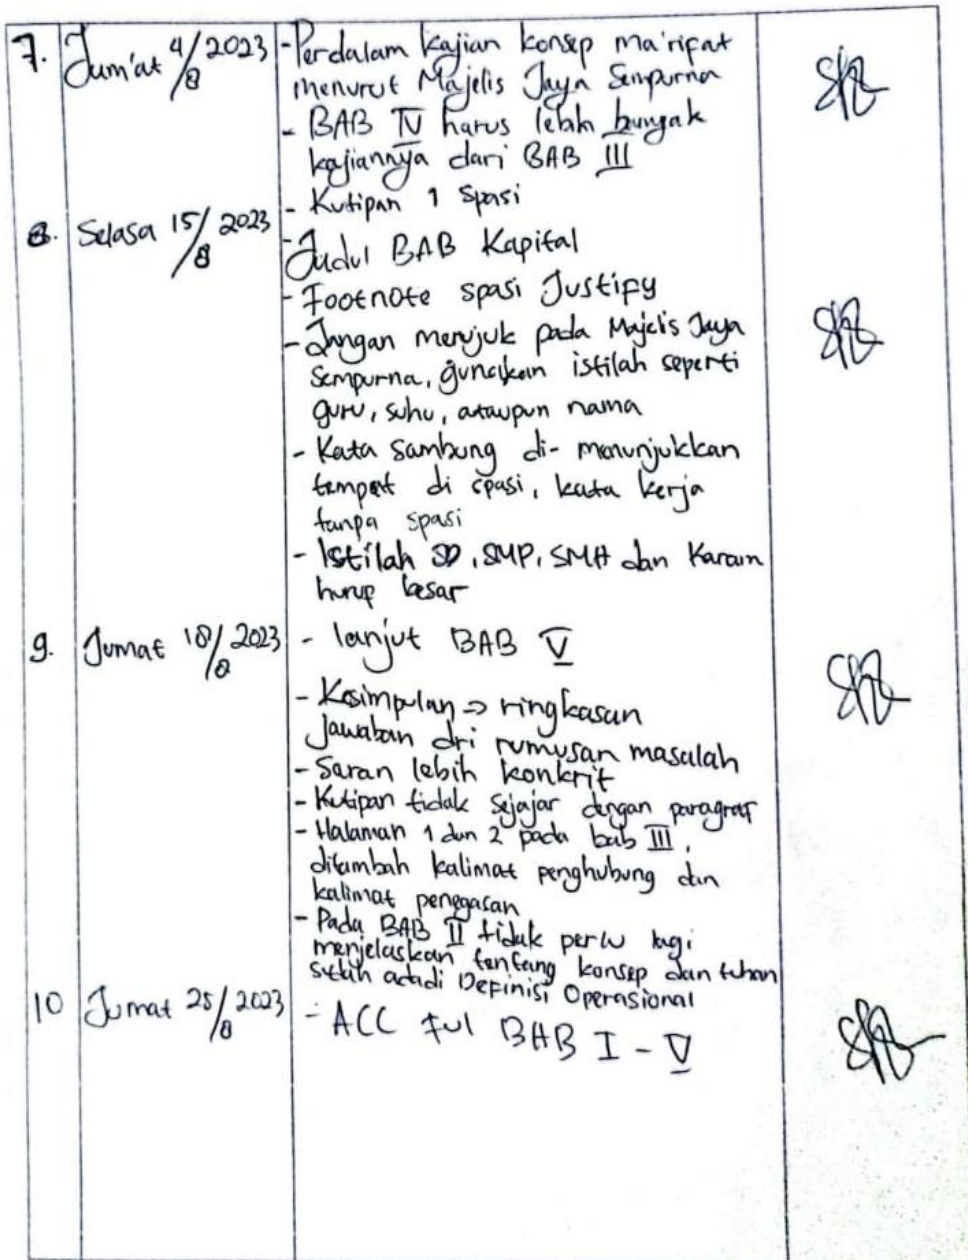 7. Jum'at 4/8 2023 - Perdalam kajian konsep ma'rifat
menurut Majelis Jaya Sempurna
- BAB IV harus lebih banyak
kajiannya dari BAB III
- Kutipan 1 Spasi
8. Selasa 15/8 2023 - Judul BAB Kapital
- Footnote spasi Justify
- Jangan merujuk pada Majelis Jaya
Sempurna, gunakan istilah seperti
guru, suhu, ataupun nama
- Kata Sambung di- menunjukkan
tempat di spasi, kata kerja
tanpa spasi
- Istilah SD, SMP, SMA dan Karam
hurup besar
9. Jumat 18/8 2023 - lanjut BAB V
- Kesimpulan => ringkasan
Jawaban dri rumusan masalah
- Saran lebih konkrit
- Kutipan tidak sejajar dengan paragraf
- Halaman 1 dan 2 pada bab III,
ditambah kalimat penghubung dan
kalimat penegasan
- Pada BAB II tidak perlu lagi
menjelaskan tentang konsep dan tuhan
adadi Definisi Operasional
10 Jumat 25/8 2023 - ACC ful BAB I - V